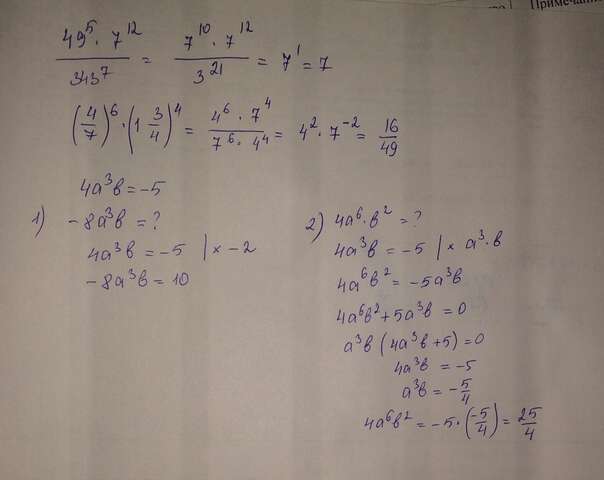 Примечани
49⁵ · 7¹² / 343⁷ = 7¹⁰ · 7¹² / 3²¹ = 7¹ = 7
(4/7)⁶ · (1 3/4)⁴ = 4⁶ · 7⁴ / 7⁶ · 4⁴ = 4² · 7⁻² = 16/49
4a³b = -5
1) -8a³b = ?
4a³b = -5 | × -2
-8a³b = 10
2) 4a⁶ · b² = ?
4a³b = -5 | × a³ · b
4a⁶b² = -5a³b
4a⁶b² + 5a³b = 0
a³b (4a³b + 5) = 0
4a³b = -5
a³b = -5/4
4a⁶b² = -5 · (-5/4) = 25/4